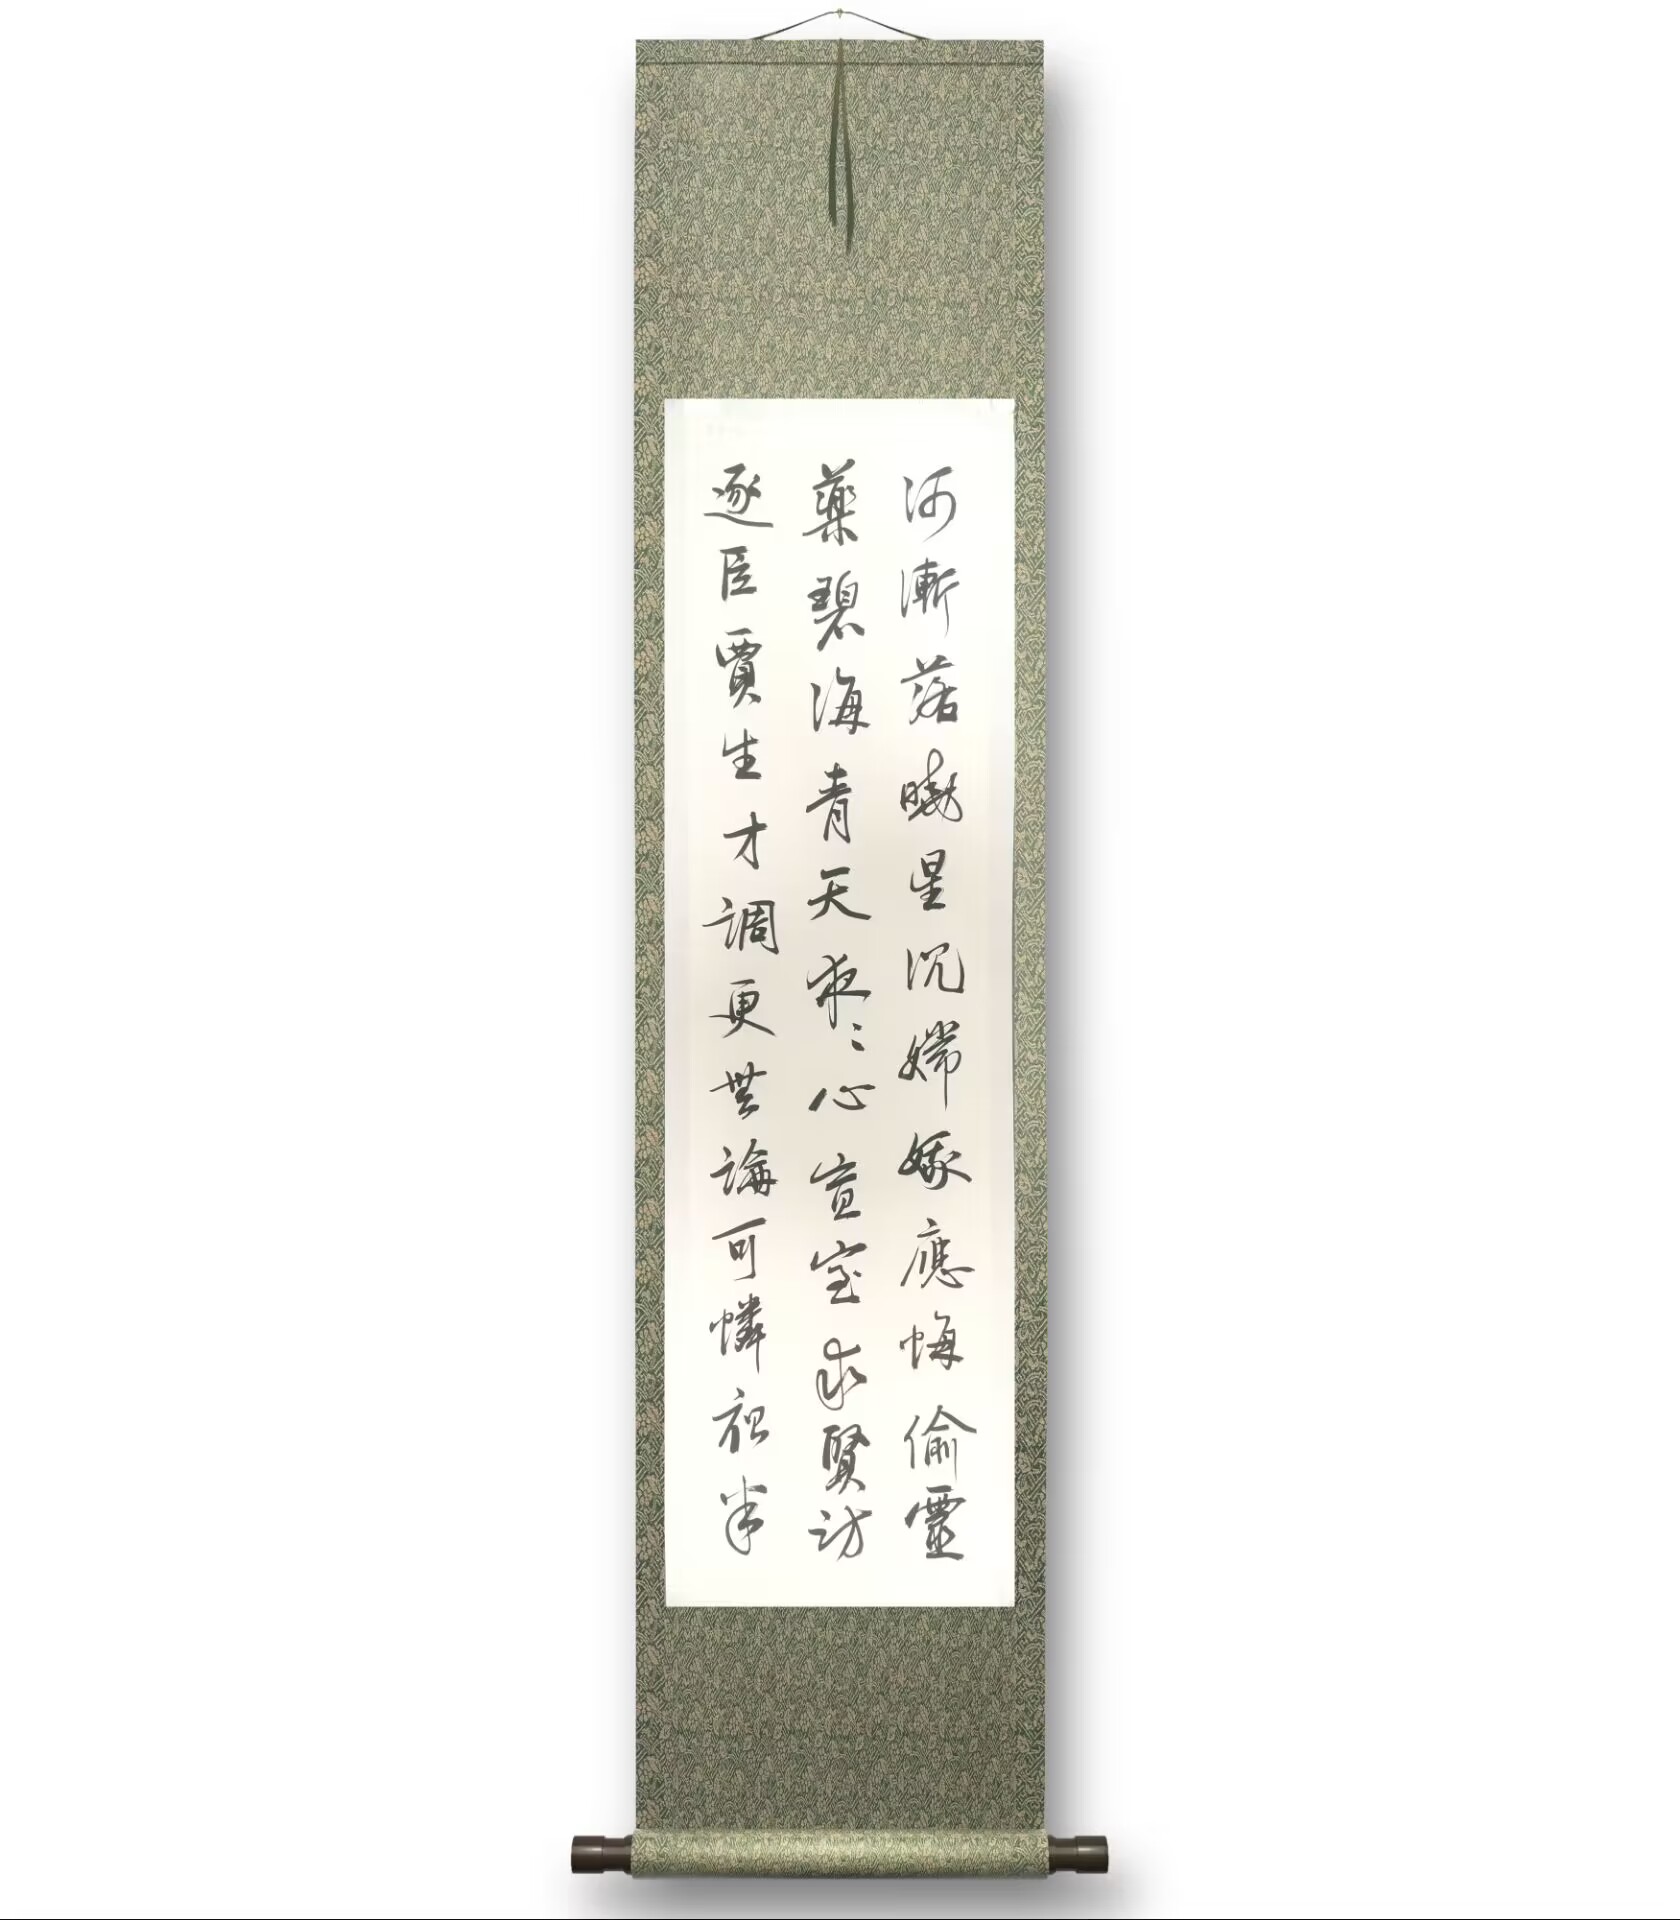 河漸落曉星沉嫦娥應悔偷靈
藥碧海青天夜〻心宣室求賢訪
逐臣賈生才調更無論可憐夜半